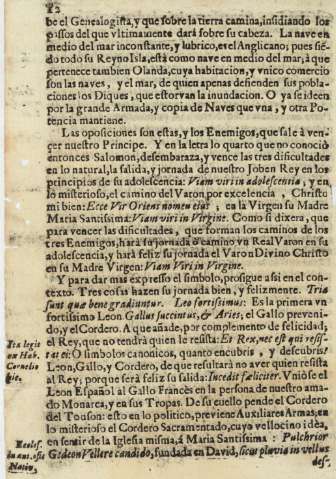 12
be el Genealogista, y que sobre la tierra camina, insidiando los
passos del que vltimamente dará sobre su cabeza. La nave en
medio del mar inconstante, y lubrico, es el Anglicano; pues siẽ-
do todo su Reyno Isla, està como nave en medio del mar; à que
pertenece tambien Olanda, cuya habitacion, y vnico comercio
son las naves, y el mar, de quien apenas defienden sus pobla-
ciones los Diques, que estorvan la inundacion. O ya se ideen
por la grande Armada, y copia de Naves que vna, y otra Po-
tencia mantiene.
Las oposiciones son estas, y los Enemigos, que sale à ven-
cer nuestro Principe. Y en la letra lo quarto que no conociò
entonces Salomon, desembaraza, y vence las tres dificultades
en lo natural, la salida, y jornada de nuestro Joben Rey en los
principios de su adolescencia: Viam viri in adolescentia, y en
lo misterioso, el camino del Varon por excelencia, Christo
mi bien: Ecce Vir Oriens nomen eius, en la Virgen su Madre
Maria Santissima: Viam viri in Virgine. Como si dixera, que
para vencer las dificultades, que forman los caminos de los
tres Enemigos, hará su jornada ò camino vn Real Varon en su
adolescencia, y hará feliz su jornada el Varon Divino Christo
en su Madre Virgen: Viam Viri in Virgine.
Y para dar mas expresso el simbolo, prosigue asi en el con-
texto. Tres cosas hazen su jornada bien, y felizmente. Tria
sunt quæ bene gradiuntur. Leo fortissimus: Es la primera vn
fortissimo Leon. Gallus succintus, & Aries; el Gallo preveni-
do, y el Cordero. A que añade, por complemento de felicidad,
el Rey, que no tendrá quien le resista: Et Rex, nec est qui resis-
tat ei: O simbolos canonicos, quanto encubris, y descubris!
Leon, Gallo, y Cordero, de que resultará no aver quien resista
al Rey; porque será feliz su salida: Incedit fæliciter. Vniòse el
Leon Español al Gallo Francès en la persona de nuestro ama-
do Monarca, y en sus Tropas. De su cuello pende el Cordero
del Touson: esto en lo politico, previene Auxiliares Armas; en
lo misterioso el Cordero Sacramentado, cuyo vellocino idèa,
en sentir de la Iglesia misma, á Maria Santissima: Pulchrior
Gedeon Vellere candido, fundada en David, sicut pluvia in vellus
des-
Ita legit
ex Hab.
Cornelio
hic.
Eccles.
Nativ.